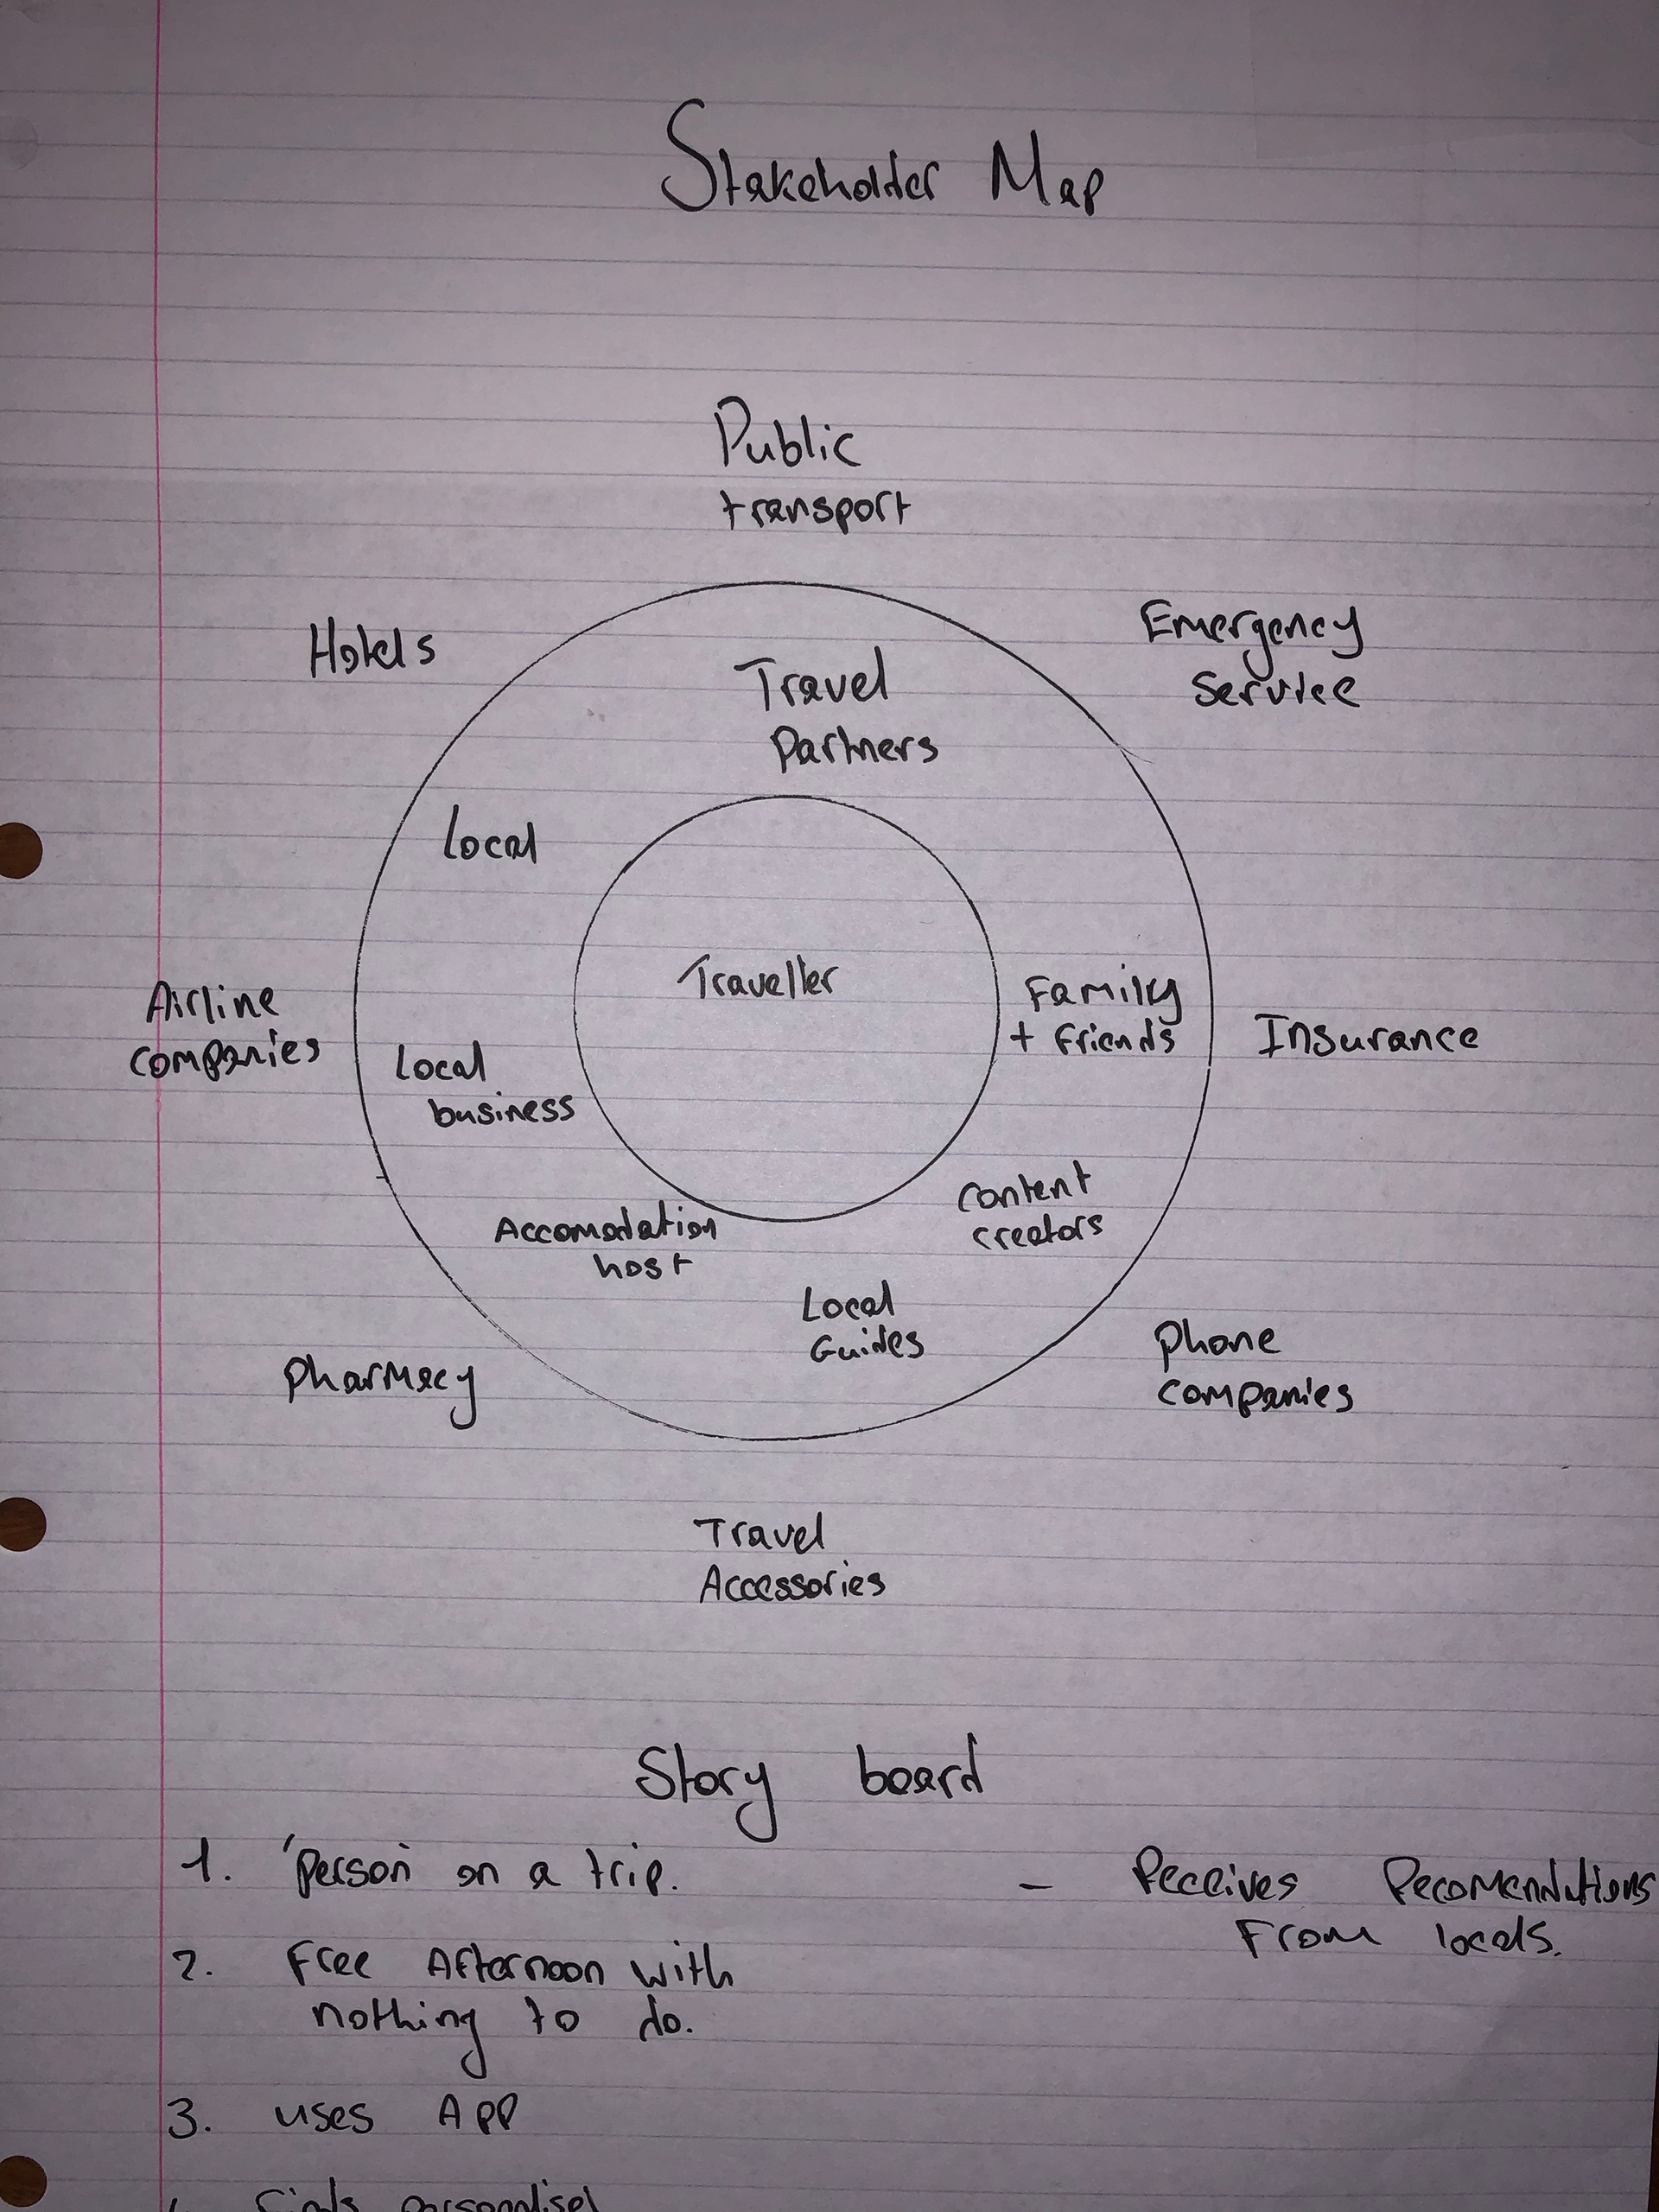 Stakeholder Map
Public
transport
Hotels
Emergency
Service
Travel
Partners
Local
Traveller
Family
+ Friends
Airline
companies
Local
business
Insurance
Content
creators
Accomodation
host
Local
Guides
Pharmacy
Phone
companies
Travel
Accessories
Story board
1. 'Person' on a trip.
- Receives Recomendations
From locals.
2. Free Afternoon with
nothing to do.
3. uses App
Finds personalised